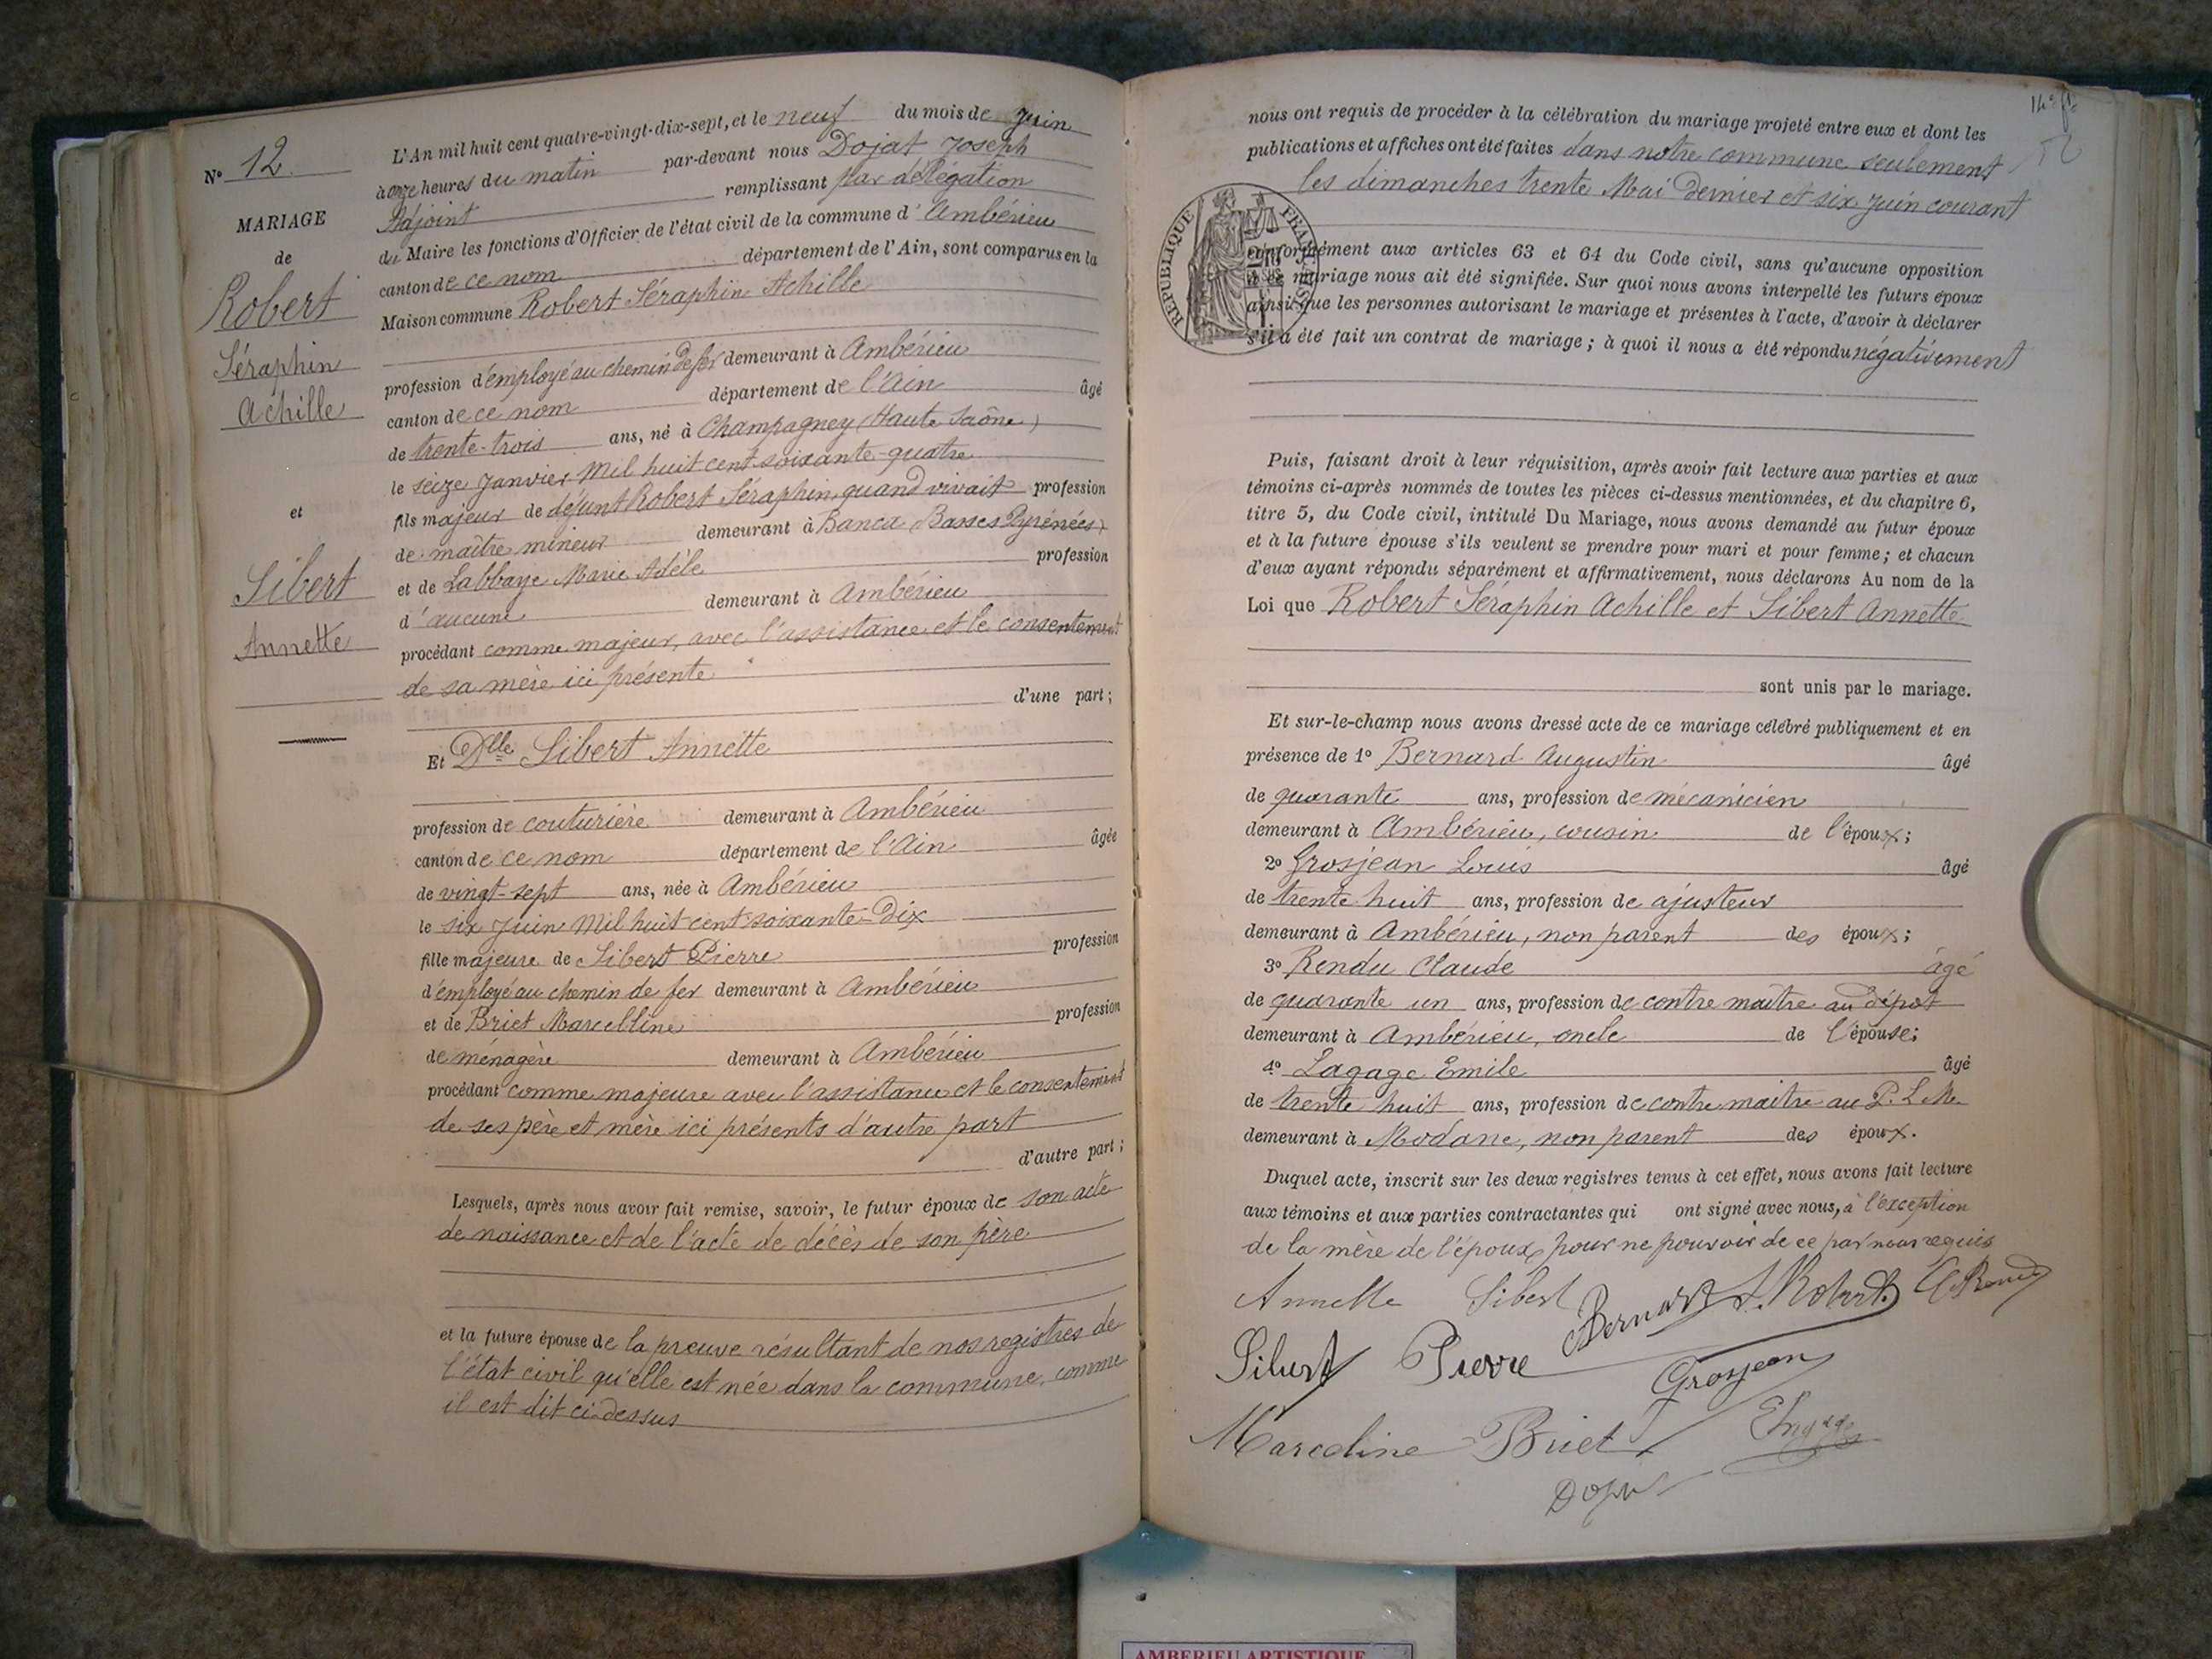 N° 12
MARIAGE
de
Robert
Séraphin
Achille
et
Sibert
Annette
L'An mil huit cent quatre-vingt-dix-sept, et le neuf du mois de Juin
à onze heures du matin par-devant nous Dojat Joseph
Adjoint remplissant par délégation
du Maire les fonctions d'Officier de l'état civil de la commune d'Ambérieu
canton de ce nom département de l'Ain, sont comparus en la
Maison commune Robert Séraphin Achille
profession d'employé au chemin de fer demeurant à Ambérieu
canton de ce nom département de l'Ain âgé
de trente-trois ans, né à Champagney (Haute Saône)
le seize Janvier Mil huit cent soixante-quatre
fils majeur de défunt Robert Séraphin quand vivait profession
de maître mineur demeurant à Banca (Basses Pyrénées)
et de Labbaye Marie Adèle profession
d'aucune demeurant à Ambérieu
procédant comme majeur, avec l'assistance et le consentement
de sa mère ici présente
d'une part;
Et Dlle Sibert Annette
profession de couturière demeurant à Ambérieu
canton de ce nom département de l'Ain âgée
de vingt-sept ans, née à Ambérieu
le six Juin Mil huit cent soixante-Dix
fille majeure de Sibert Pierre profession
d'employé au chemin de fer demeurant à Ambérieu
et de Briet Marcelline profession
de ménagère demeurant à Ambérieu
procédant comme majeure avec l'assistance et le consentement
de ses père et mère ici présents d'autre part
d'autre part;
Lesquels, après nous avoir fait remise, savoir, le futur époux de son acte
de naissance et de l'acte de décès de son père
et la future épouse de la preuve résultant de nos registres de
l'état civil qu'elle est née dans la commune, comme
il est dit ci-dessus
nous ont requis de procéder à la célébration du mariage projeté entre eux et dont les
publications et affiches ont été faites dans notre commune seulement
les dimanches trente Mai Dernier et six Juin courant
RÉPUBLIQUE FRANÇAISE
conformément aux articles 63 et 64 du Code civil, sans qu'aucune opposition
à ce mariage nous ait été signifiée. Sur quoi nous avons interpellé les futurs époux
ainsi que les personnes autorisant le mariage et présentes à l'acte, d'avoir à déclarer
s'il a été fait un contrat de mariage; à quoi il nous a été répondu négativement
Puis, faisant droit à leur réquisition, après avoir fait lecture aux parties et aux
témoins ci-après nommés de toutes les pièces ci-dessus mentionnées, et du chapitre 6,
titre 5, du Code civil, intitulé Du Mariage, nous avons demandé au futur époux
et à la future épouse s'ils veulent se prendre pour mari et pour femme; et chacun
d'eux ayant répondu séparément et affirmativement, nous déclarons Au nom de la
Loi que Robert Séraphin Achille et Sibert Annette
sont unis par le mariage.
Et sur-le-champ nous avons dressé acte de ce mariage célébré publiquement et en
présence de 1° Bernard Augustin âgé
de quarante ans, profession de mécanicien
demeurant à Ambérieu, cousin de l'époux;
2° Grosjean Louis âgé
de trente huit ans, profession de ajusteur
demeurant à Ambérieu, non parent des époux;
3° Rendu Claude âgé
de quarante un ans, profession de contre maître au dépôt
demeurant à Ambérieu, oncle de l'épouse;
4° Lagage Emile âgé
de trente huit ans, profession de contre maître au P. L. M.
demeurant à Modane, non parent des époux.
Duquel acte, inscrit sur les deux registres tenus à cet effet, nous avons fait lecture
aux témoins et aux parties contractantes qui ont signé avec nous, à l'exception
de la mère de l'époux pour ne pouvoir de ce par nous requis
Annette Sibert Bernard S. Robert C. Rendu
Sibert Pierre Grosjean
Marceline Briet
Dojat
AMBERIEU ARTISTIQUE